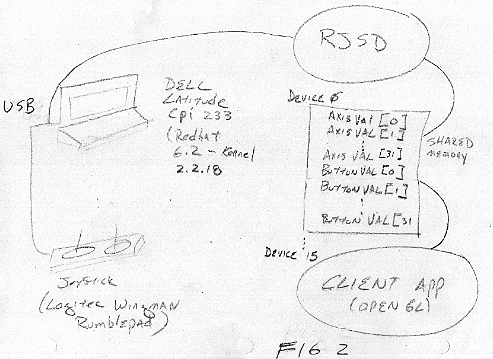 RJSD
USB
DELL
LATITUDE
Cpi 233
(Redhat
6.2 - Kernel
2.2.18
DEVICE 0
AXIS VAL [0]
AXIS VAL [1]
AXIS VAL [31]
BUTTON VAL [0]
BUTTON VAL [1]
BUTTON VAL [31
SHARED
MEMORY
DEVICE 15
JOYSTICK
(Logitec WINGMAN
Rumblepad)
CLIENT APP
(OPEN GL)
FIG 2